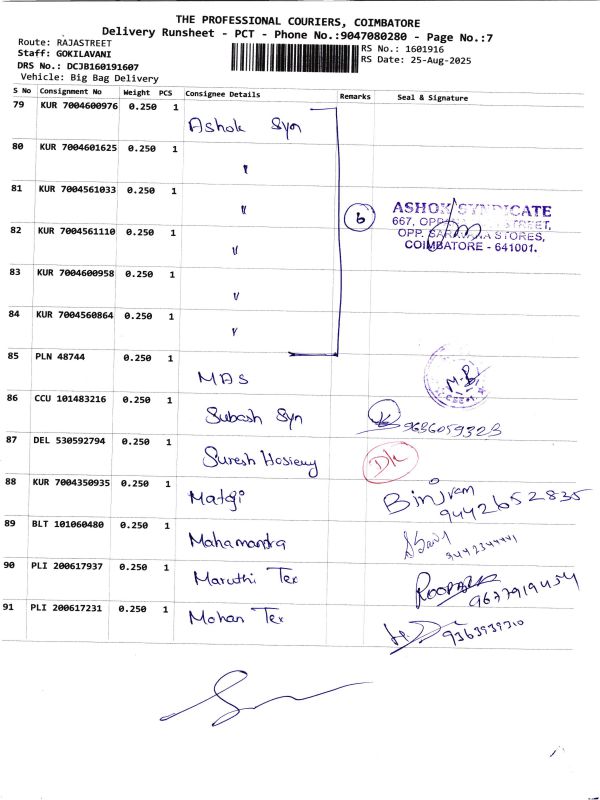 THE PROFESSIONAL COURIERS, COIMBATORE
Delivery Runsheet - PCT - Phone No.:9047080280 - Page No.:7
Route: RAJASTREET
Staff: GOKILAVANI
DRS No.: DCJB160191607
Vehicle: Big Bag Delivery
RS No.: 1601916
RS Date: 25-Aug-2025
S No Consignment No Weight PCS Consignee Details Remarks Seal & Signature
79 KUR 7004600976 0.250 1 Ashok Syn
80 KUR 7004601625 0.250 1 "
81 KUR 7004561033 0.250 1 "
82 KUR 7004561110 0.250 1 "
83 KUR 7004600958 0.250 1 "
84 KUR 7004560864 0.250 1 "
6
ASHOK SYNDICATE
667, OPP. STREET,
OPP. SARAVANA STORES,
COIMBATORE - 641001.
85 PLN 48744 0.250 1 MAS M.B
86 CCU 101483216 0.250 1 Subash Syn 9636059323
87 DEL 530592794 0.250 1 Suresh Hosiery
88 KUR 7004350935 0.250 1 Matgi Binjram
9442652835
89 BLT 101060480 0.250 1 Mahamandra
90 PLI 200617937 0.250 1 Maruthi Tex
9677919454
91 PLI 200617231 0.250 1 Mohan Tex 9363939310